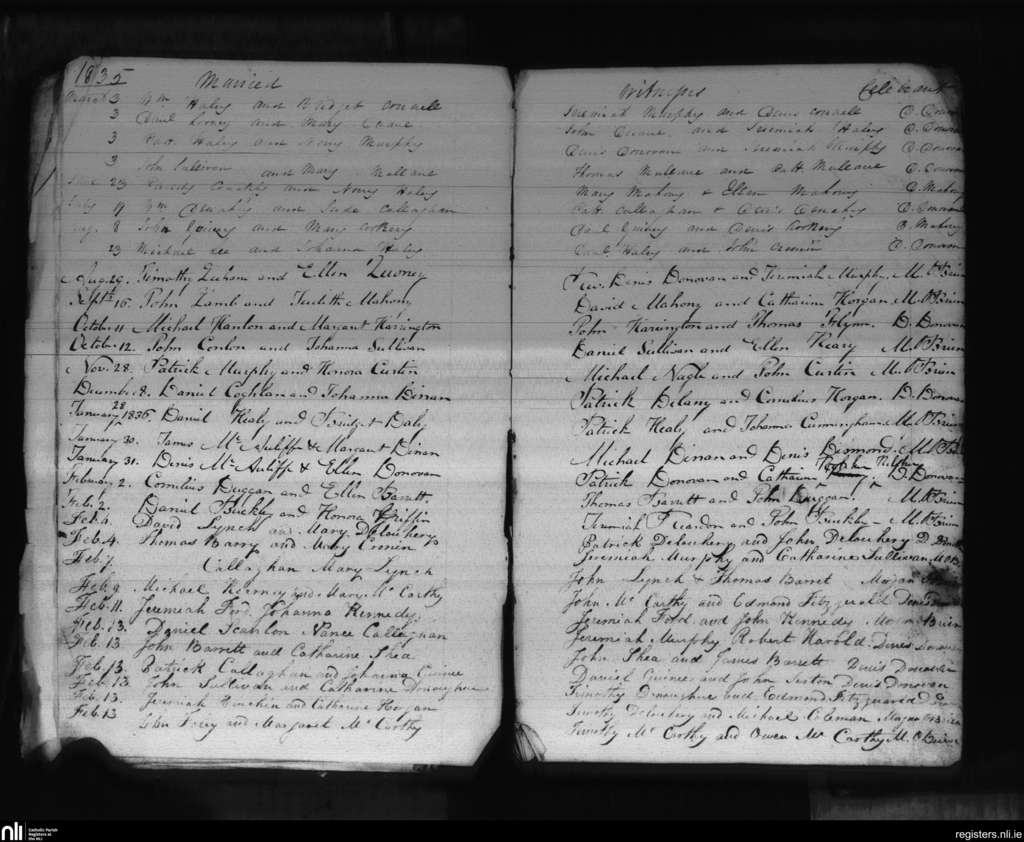 1835 Married Witness Celebrant
March 3 Wm Haley and Bridget Connell Jeremiah Murphy and Denis Connell D. Donovan
3 Danl and Mary John and Jeremiah Haley D. Donovan
3 Patt Haley and Nony Murphy Denis Donovan and Jeremiah Murphy D. Donovan
3 John Sullivan and Mary Mullane Thomas Mullane and Patt Mullane D. Donovan
23 and Nony Haley Mary Mahony & Ellen Mahony D. Mahony
July 19 Wm and Jude Callaghan Patt Callaghan & Denis D. Donovan
Aug. 8 John and Mary Corkery Danl and Denis Corkery D. Mahony
23 Michael Lee and Johanna Haley Danl Haley and John D. Donovan
Aug. 29. Timothy and Ellen Denis Donovan and Jeremiah Murphy M. O'Brien
Septr. 16. John Lamb and Judith Mahony David Mahony and Catharine Horgan M. O'Brien
October 11 Michael Hanlon and Margaret Harington John Harington and Thomas Flynn. D. Donovan
October 12. John Conlon and Johanna Sullivan Daniel Sullivan and Ellen Keary M. O'Brien
Nov. 28. Patrick Murphy and Honora Curtin Michael Nagle and John Curtin M. O'Brien
December 8. Daniel Coghlan and Johanna Dinan Patrick Delany and Cornelius Horgan. D. Donovan
January 28 1836. Daniel Healy and Bridget Daly Patrick Healy and Johanna Cunningham M. O'Brien
January 30. James Mc Auliffe & Margaret Dinan Michael Dinan and Denis Desmond M. O'Brien
January 31. Denis Mc Auliffe & Ellen Donovan Patrick Donovan and Catharine D. Donovan
February 2. Cornelius Duggan and Ellen Barrett Thomas Barrett and John Duggan. M. O'Brien
Feb. 2. Daniel Buckley and Honora Griffin Jeremiah Reardon and John Buckley M. O'Brien
Feb. 4. David Lynch and Mary Delouhery Patrick Delouhery and John Delouhery D
Feb. 4. Thomas Barry and Mary Cronin Jeremiah Murphy and Catharine Sullivan M O B
Feb. 7. Callaghan Mary Lynch John Lynch & Thomas Barret
Feb. 9. Michael Kearney and Mary Mc Carthy John Mc Carthy and Edmond Fitzgerald Denis
Feb. 11. Jeremiah Ford Johanna Kennedy Jeremiah Ford and John Kennedy
Feb. 13. Daniel Scanlon Nance Callaghan Jeremiah Murphy Robert Harold Denis Donovan
Feb. 13 John Barrett and Catharine Shea John Shea and James Barrett Denis Donovan
Feb. 13. Patrick Callaghan and Johanna Guinee Daniel Guinee and John Sexton Denis Donovan
Feb. 13. John Sullivan and Catharine Donoughue Timothy Donoughue and Edmond Fitzgerald
Feb. 13. Jeremiah and Catharine Horgan Timothy Delouhery and Michael Coleman
Feb. 13 John and Margaret Mc Carthy Timothy Mc Carthy and Owen Mc Carthy M. O Brien
nli Catholic Parish Registers at the NLI
registers.nli.ie